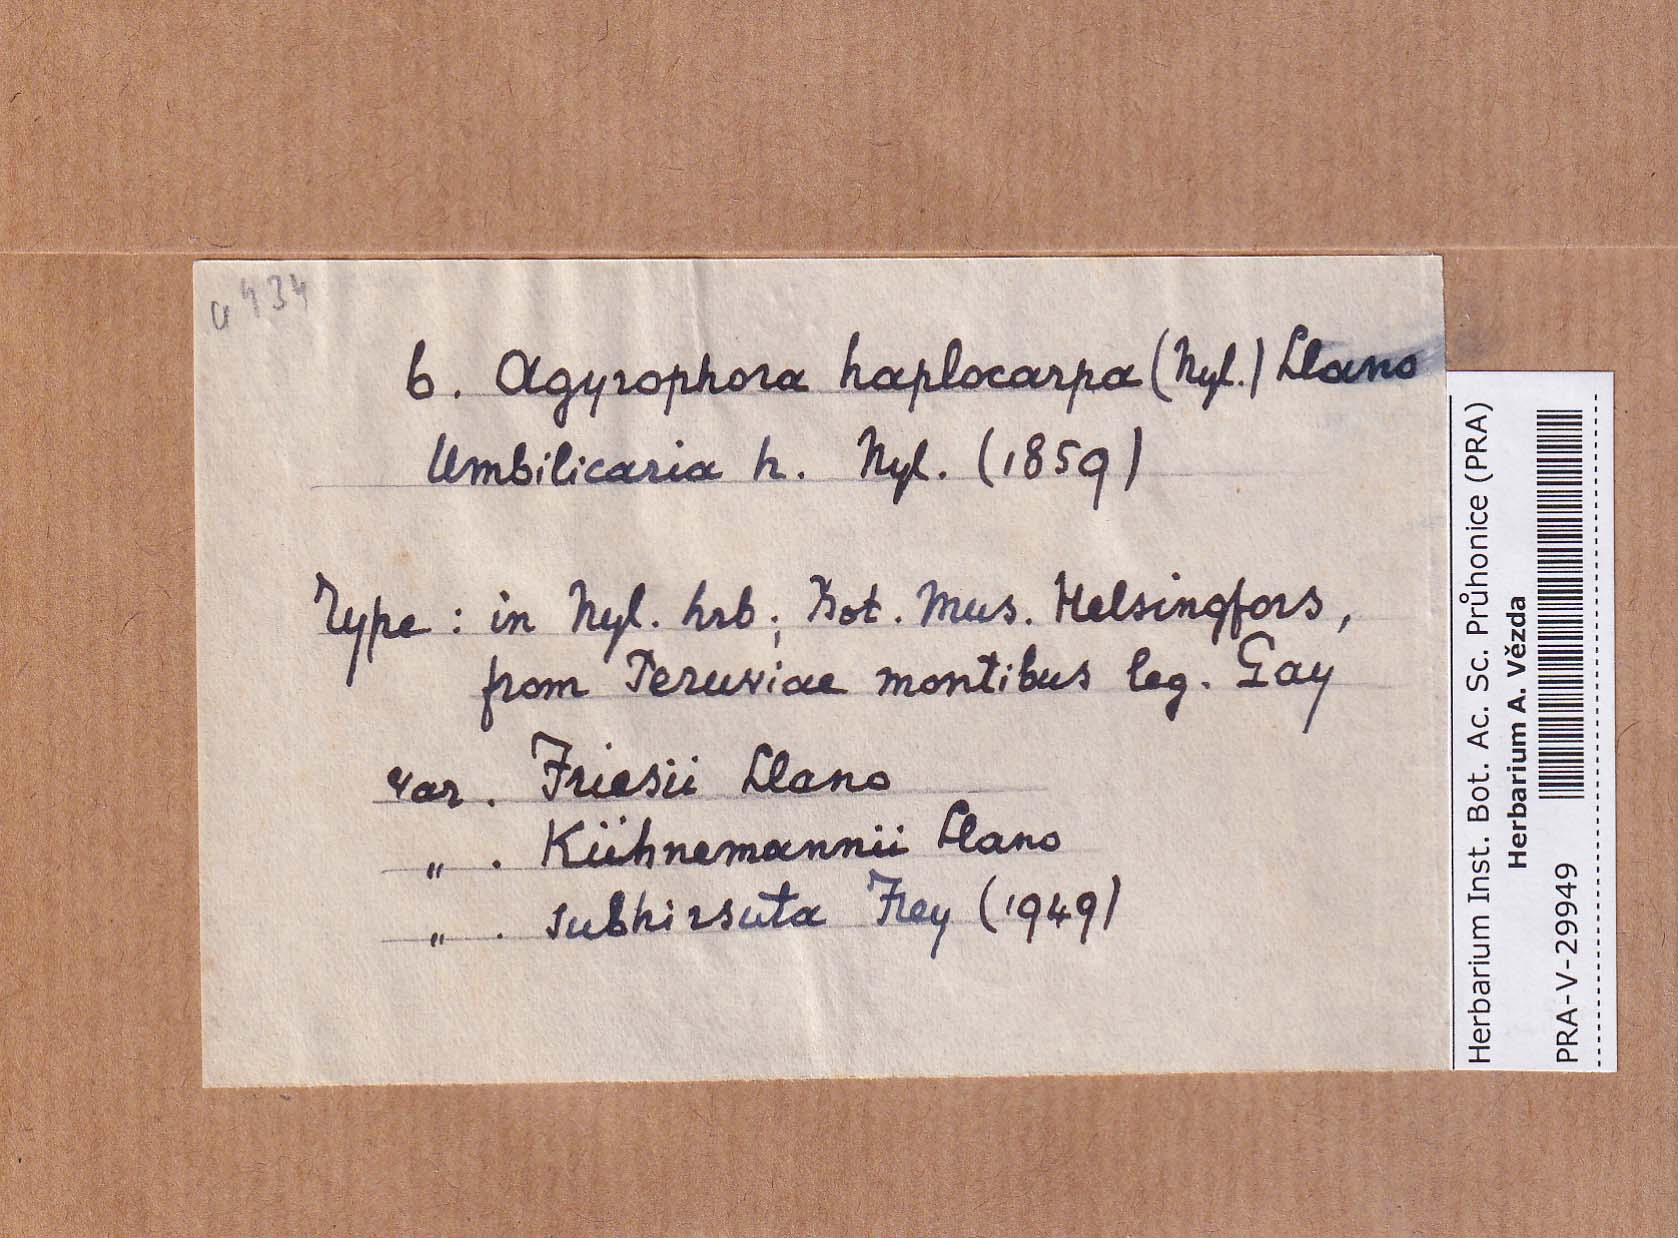 u 434
6. Agyrophora haplocarpa (Nyl.) Llano
Umbilicaria h. Nyl. (1859)
Type : in Nyl. hrb; Bot. Mus. Helsingfors,
from Peruviae montibus leg. Gay
var. Friesii Llano
„ . Kühnemannii Llano
„ . subhirsuta Frey (1949)
Herbarium Inst. Bot. Ac. Sc. Průhonice (PRA)
Herbarium A. Vězda
PRA-V-29949